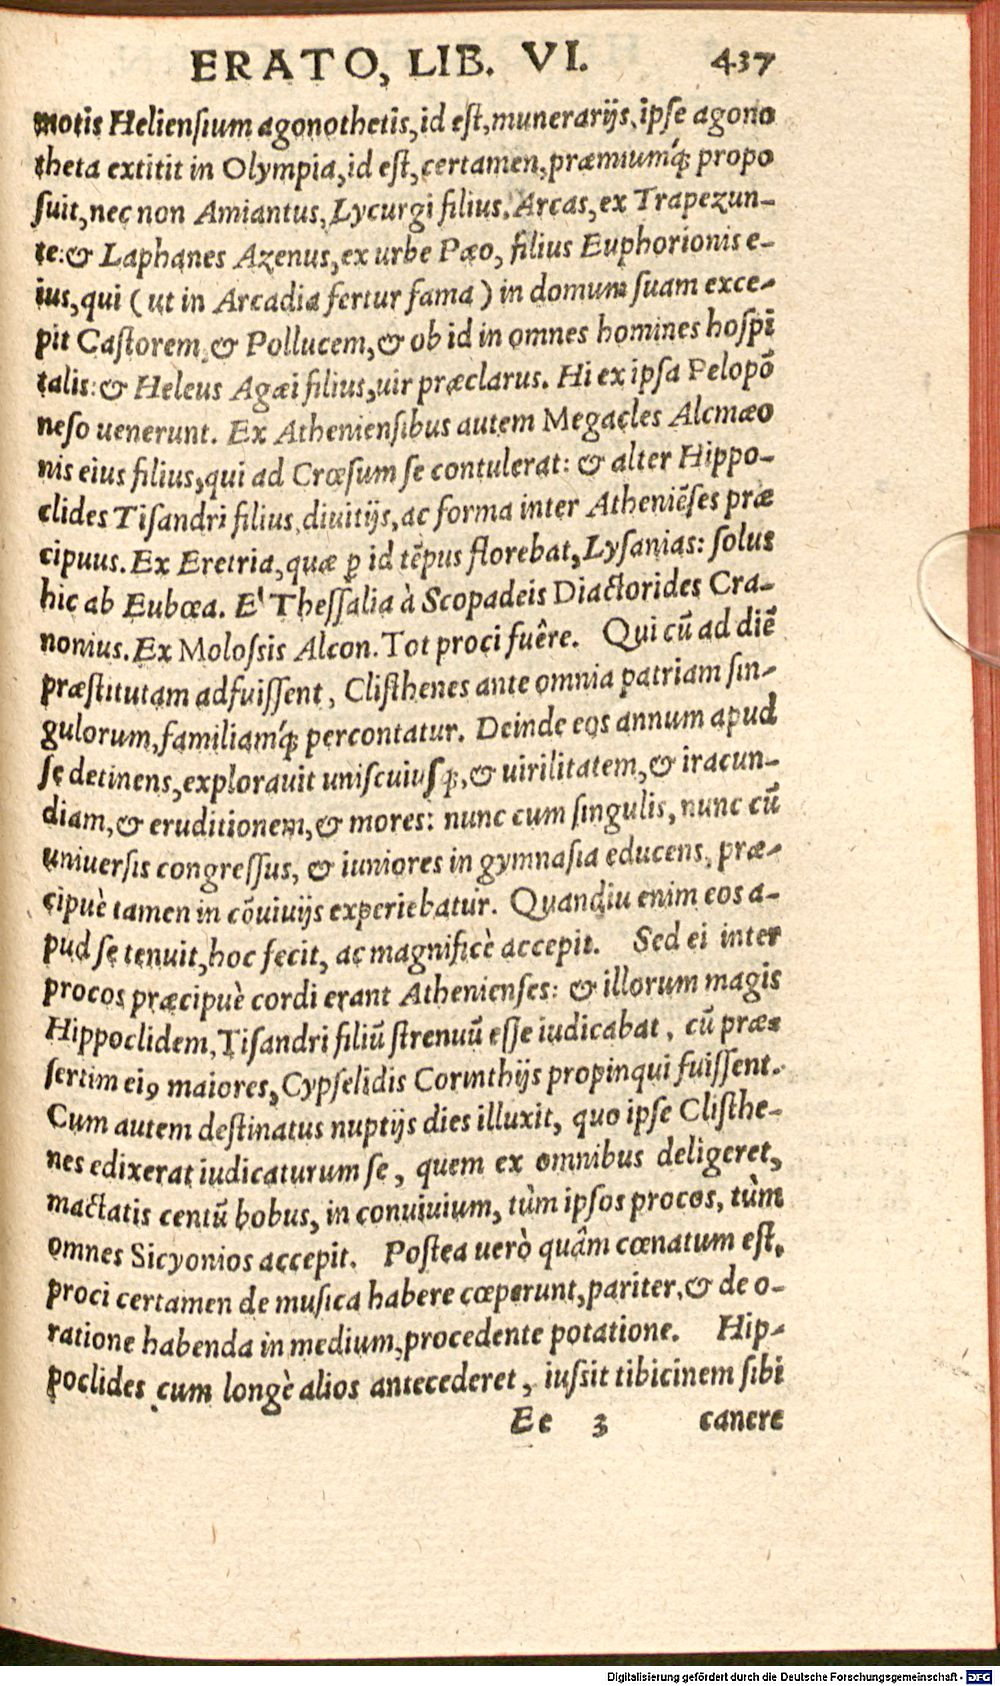 ERATO, LIB. VI. 437
motis Heliensium agonothetis, id est, munerarijs, ipse agono
theta extitit in Olympia, id est, certamen, præmiumq́; propo
suit, nec non Amiantus, Lycurgi filius, Arcas, ex Trapezun-
te: & Laphanes Azenus, ex urbe Pæo, filius Euphorionis e-
ius, qui (ut in Arcadia fertur fama) in domum suam exce-
pit Castorem, & Pollucem, & ob id in omnes homines hospi
talis: & Heleus Agæi filius, uir præclarus. Hi ex ipsa Pelopō
neso uenerunt. Ex Atheniensibus autem Megacles Alcmæo
nis eius filius, qui ad Crœsum se contulerat: & alter Hippo-
clides Tisandri filius, diuitijs, ac forma inter Atheniēses præ
cipuus. Ex Eretria, quæ ꝑ id tēpus florebat, Lysanias: solus
hic ab Eubœa. E' Thessalia à Scopadeis Diactorides Cra-
nonius. Ex Molossis Alcon. Tot proci fuêre. Qui cū ad diē
præstitutam adfuissent, Clisthenes ante omnia patriam sin-
gulorum, familiamq́; percontatur. Deinde eos annum apud
se detinens, explorauit uniscuiusq;, & uirilitatem, & iracun-
diam, & eruditionem, & mores: nunc cum singulis, nunc cū
uniuersis congressus, & iuniores in gymnasia educens, præ-
cipuè tamen in cōuiuijs experiebatur. Quandiu enim eos a-
pud se tenuit, hoc fecit, ac magnificè accepit. Sed ei inter
procos præcipuè cordi erant Athenienses: & illorum magis
Hippoclidem, Tisandri filiū strenuū esse iudicabat, cū præ-
sertim eiꝰ maiores, Cypselidis Corinthijs propinqui fuissent.
Cum autem destinatus nuptijs dies illuxit, quo ipse Clisthe-
nes edixerat iudicaturum se, quem ex omnibus deligeret,
mactatis centū bobus, in conuiuium, tùm ipsos procos, tùm
omnes Sicyonios accepit. Postea uerò quâm cœnatum est,
proci certamen de musica habere cœperunt, pariter, & de o-
ratione habenda in medium, procedente potatione. Hip-
poclides cum longè alios antecederet, iussit tibicinem sibi
Ee 3 canere
Digitalisierung gefördert durch die Deutsche Forschungsgemeinschaft - DFG